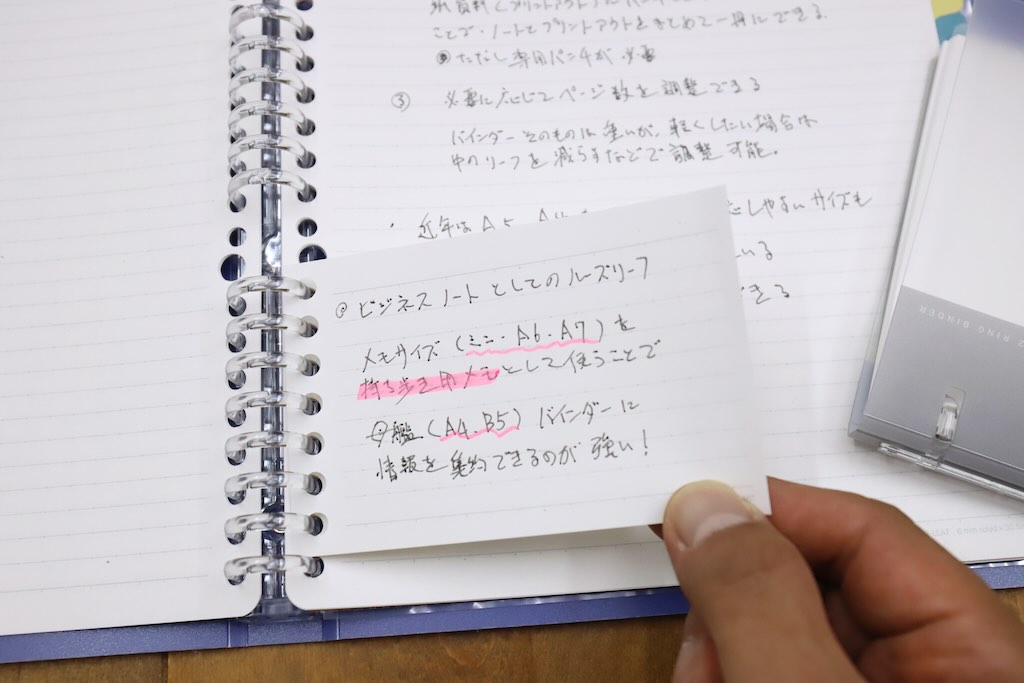 ことで・ノートとプリントアウトをまとめて一冊にできる
ただし専用パンチが必要
③ 必要に応じてページ数を調整できる
バインダーそのものは重いが、軽くしたい場合は
中のリーフを減らすなどで調整可能。
・近年はA5
サイズも
いる
できる
ビジネスノートとしてのルーズリーフ
メモサイズ(ミニ・A6・A7)を
持ち歩き用メモとして使うことで
母艦(A4、B5)バインダーに
情報を集約できるのが強い!
RING BINDER